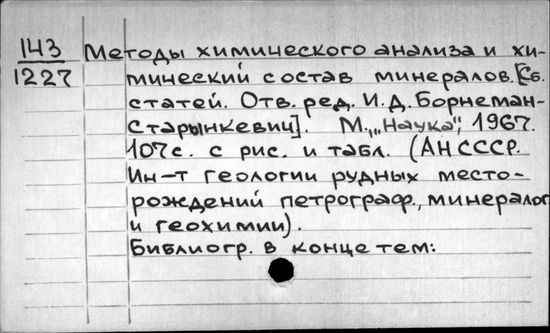 143 Методы химического анализа и хи-
1227 мический состав минералов. [Сб.
статей. Отв. ред. И.Д. Борнеман-
Старынкевич]. М., "Наука", 1967.
107с. с рис. и табл. (АН СССР.
Ин-т геологии рудных место-
рождений петрограф., минералог
и геохимии).
Библиогр. в конце тем: